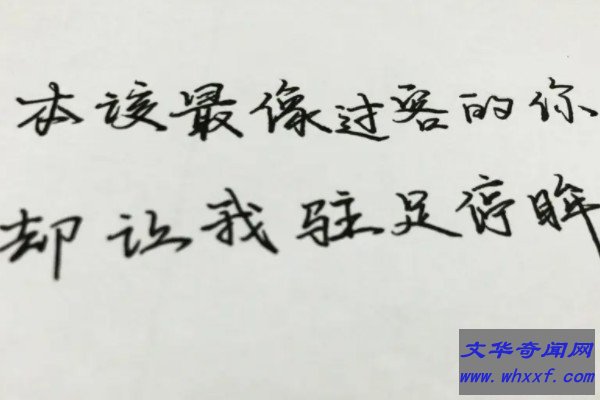 本该最像过客的你
却让我驻足停眸
文华奇闻网
www.whxxf.com